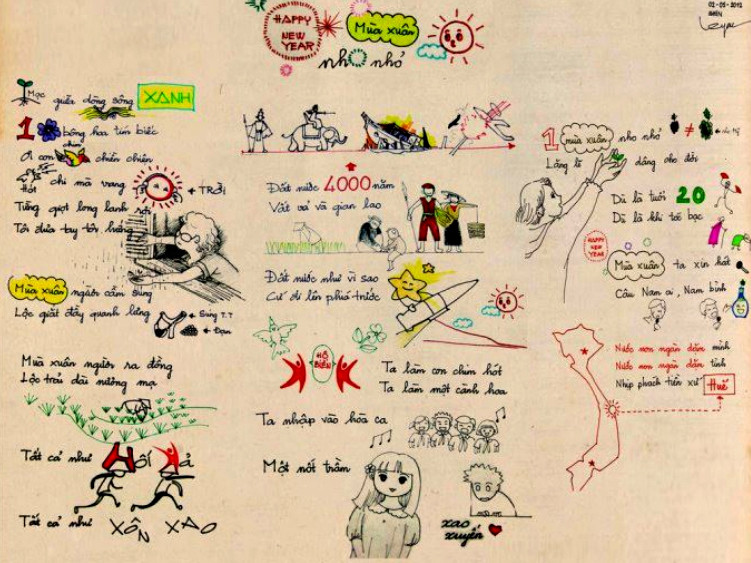 02-05-2012
HAPPY
NEW
YEAR
Mùa xuân
nho nhỏ
Mọc giữa dòng sông XANH
1 bông hoa tím biếc
Ơi con chim chiền chiện
Hót chi mà vang + TRỜI
Từng giọt long lanh rơi
Tôi đưa tay tôi hứng
Mùa xuân người cầm súng
Lộc giắt đầy quanh lưng
← Súng ?.?
← Đạn
Mùa xuân người ra đồng
Lộc trải dài nương mạ
Tất cả như HỐI HẢ
Tất cả như XÔN XAO
Đất nước 4000 năm
Vất vả và gian lao
Đất nước như vì sao
Cứ đi lên phía trước
Ta làm con chim hót
Ta làm một cành hoa
Ta nhập vào hòa ca
Một nốt trầm
xao
xuyến
1 mùa xuân nho nhỏ
Lặng lẽ dâng cho đời
Dù là tuổi 20
Dù là khi tóc bạc
HAPPY
NEW
YEAR
Mùa xuân ta xin hát
Câu Nam ai, Nam bình
Nước non ngàn dặm mình
Nước non ngàn dặm tình
Nhịp phách tiền xứ Huế